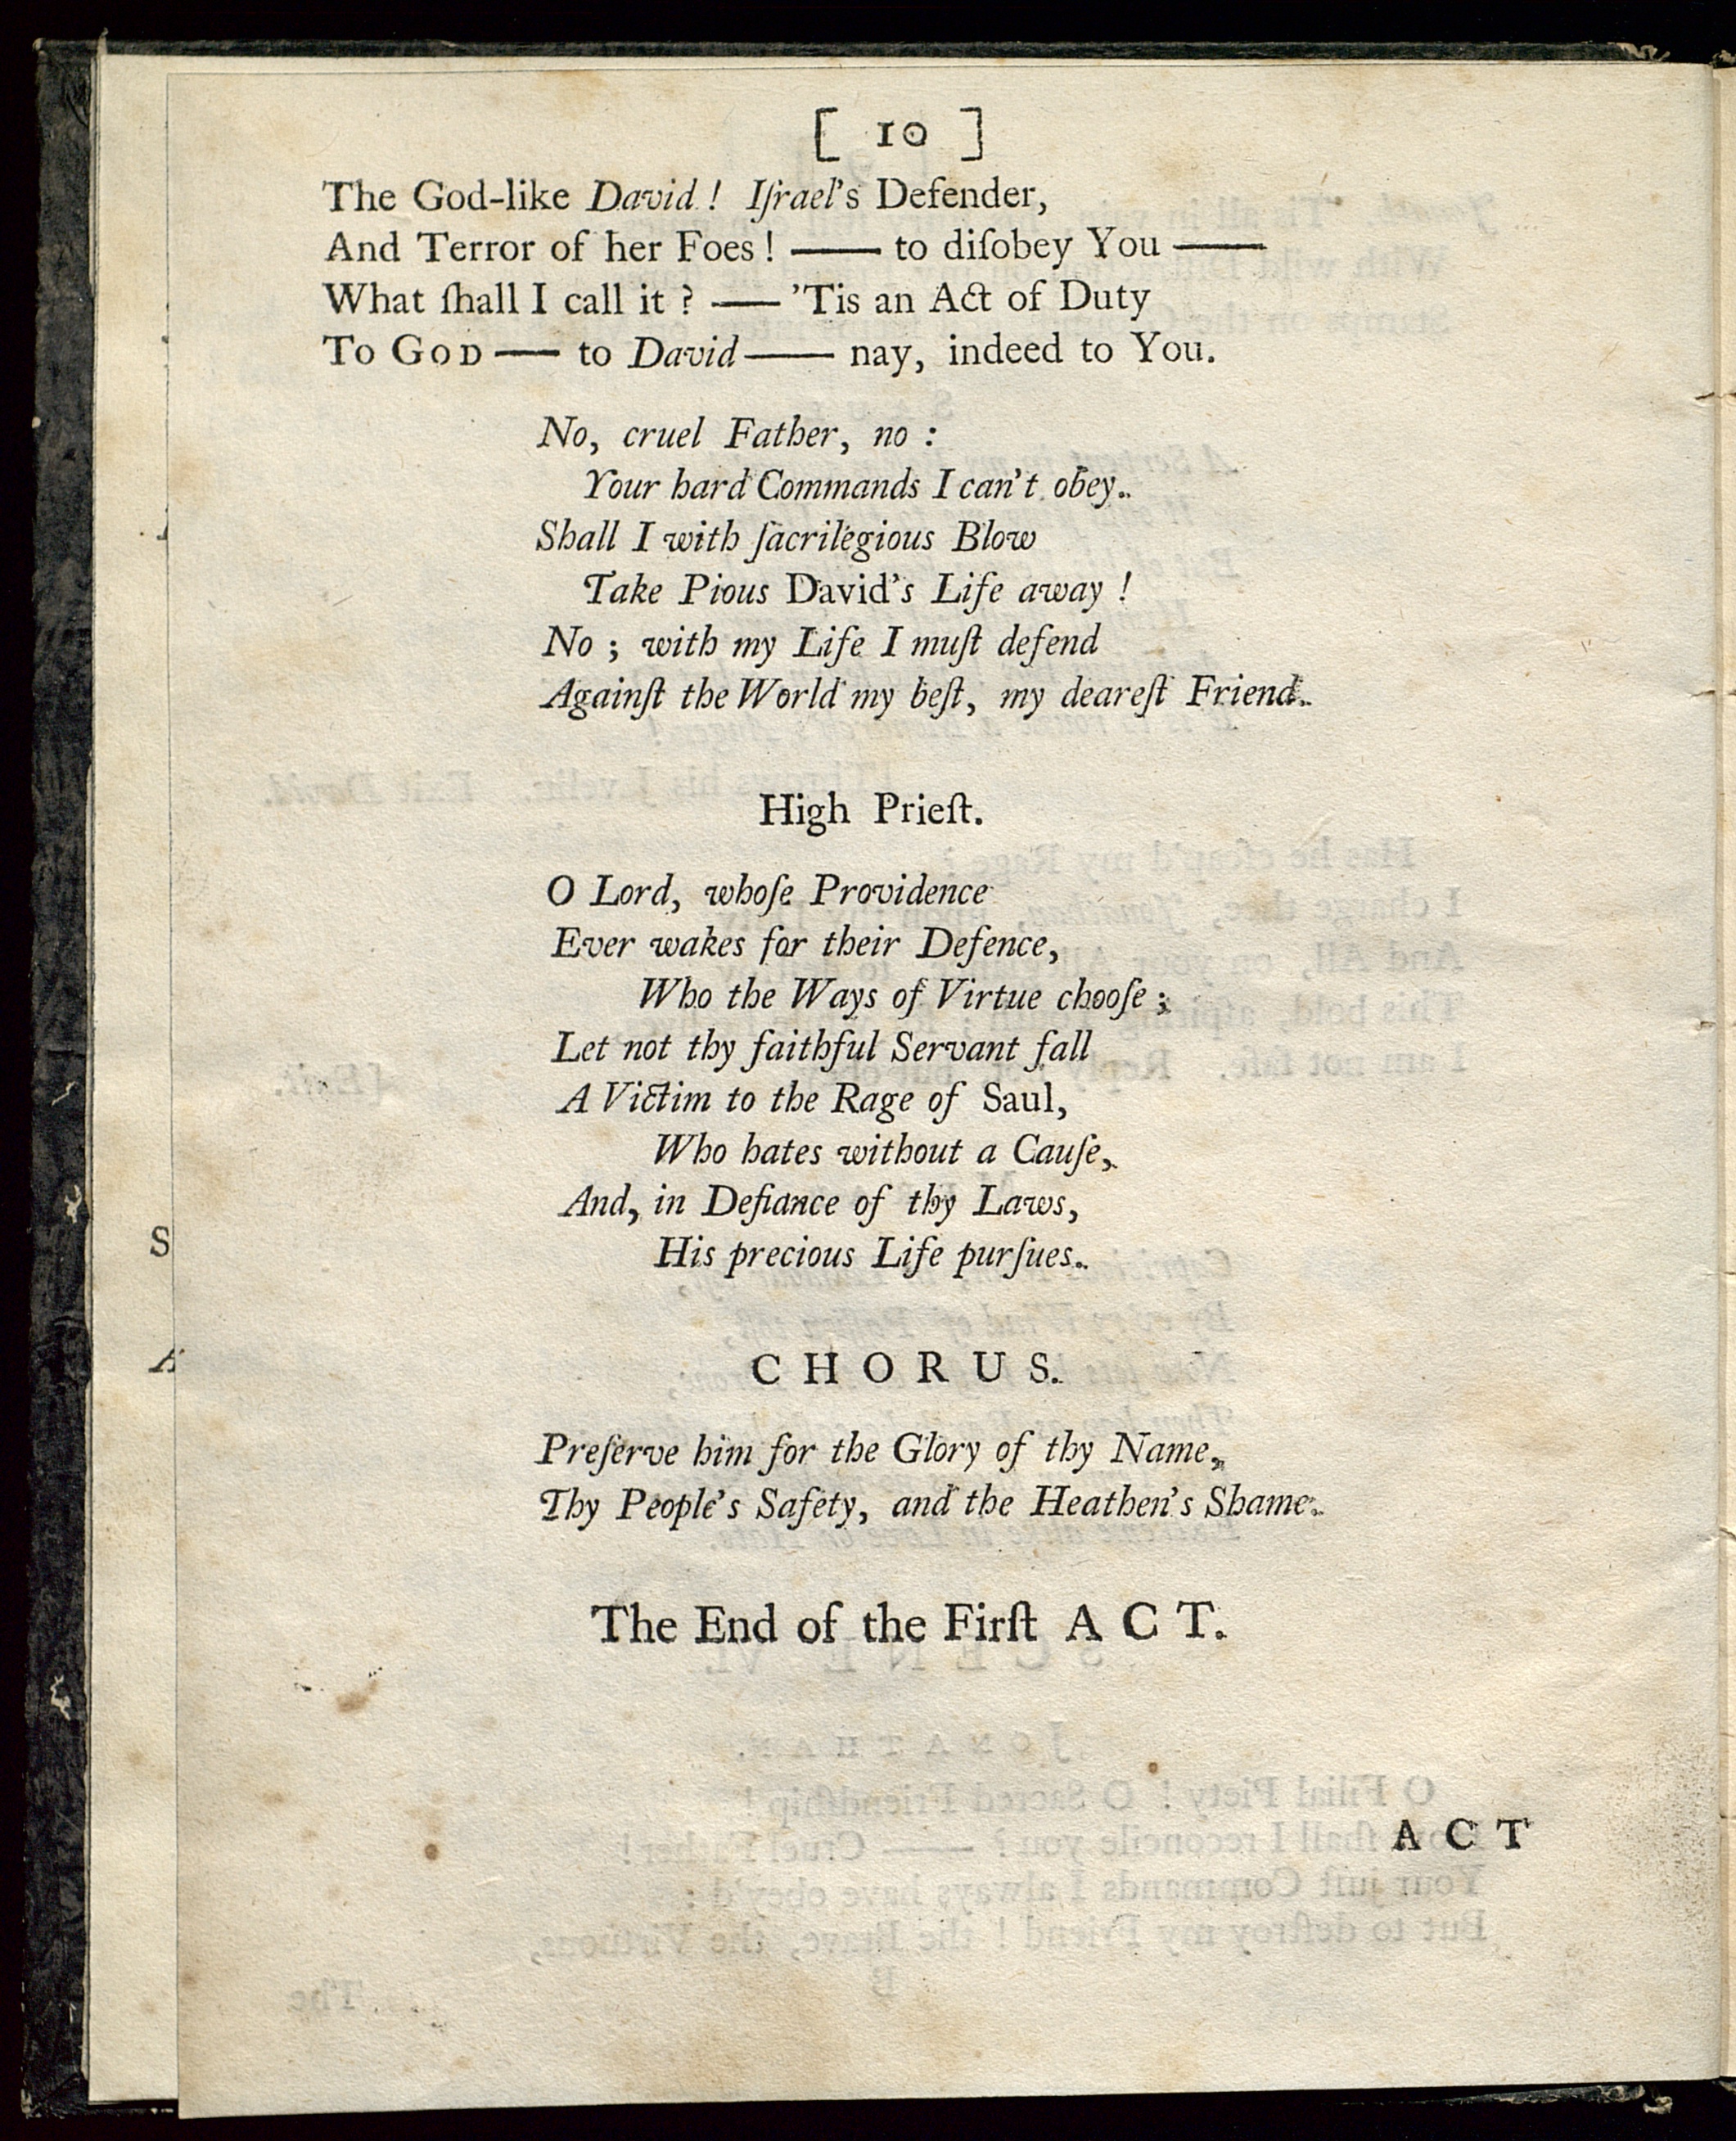 [ 10 ]
The God-like David! Iſrael's Defender,
And Terror of her Foes! —— to diſobey You ——
What ſhall I call it? —— 'Tis an Act of Duty
To GOD —— to David —— nay, indeed to You.
No, cruel Father, no :
Your hard Commands I can't obey.
Shall I with ſacrilegious Blow
Take Pious David's Life away !
No ; with my Life I muſt defend
Againſt the World my beſt, my deareſt Friend.
High Prieſt.
O Lord, whoſe Providence
Ever wakes for their Defence,
Who the Ways of Virtue chooſe ;
Let not thy faithful Servant fall
A Victim to the Rage of Saul,
Who hates without a Cauſe,
And, in Defiance of thy Laws,
His precious Life purſues.
CHORUS.
Preſerve him for the Glory of thy Name,
Thy People's Safety, and the Heathen's Shame.
The End of the Firſt ACT.
ACT
S
A